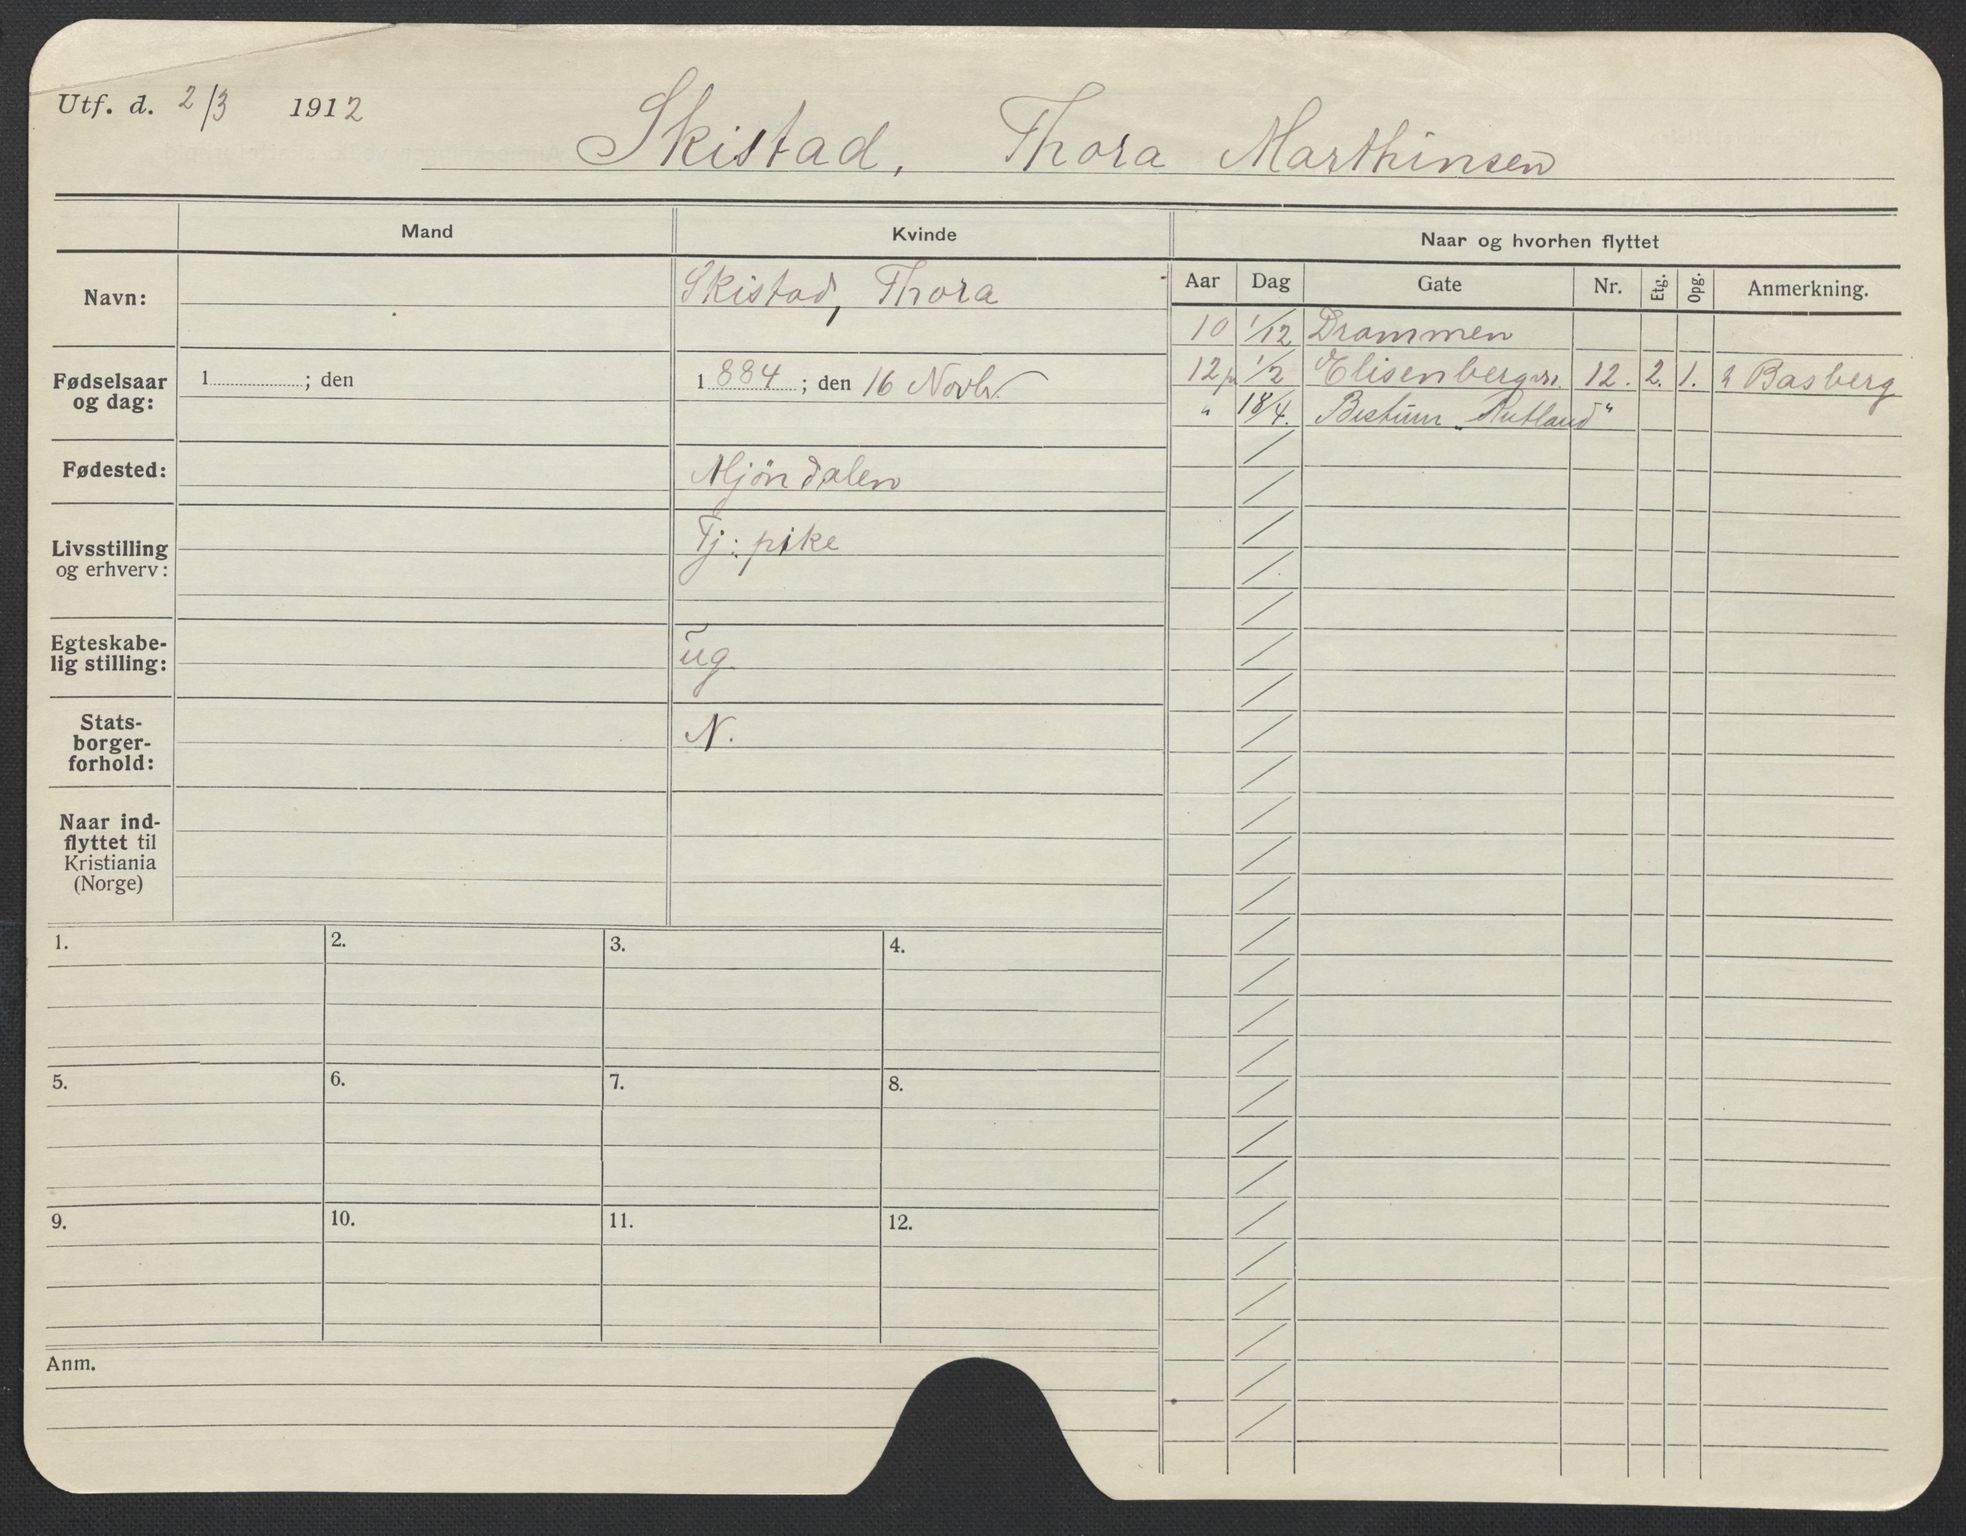 Utf. d. 2/3 1912
Skistad, Thora Marthinsen
Mand
Kvinde
Naar og hvorhen flyttet
Navn:
Skistad, Thora
Fødselsaar
og dag:
1 ; den
1 884 ; den 16 Novbr.
Fødested:
Mjöndalen
Livsstilling
og erhverv:
Tj: pike
Egteskabe-
lig stilling:
ug.
Stats-
borger-
forhold:
N.
Naar ind-
flyttet til
Kristiania
(Norge)
Aar Dag Gate Nr. Etg. Opg. Anmerkning.
10 1/12 Drammen
12 1/2 Elisenbergvn. 12. 2. 1. Basberg
" 18/4. Bestum „Rutland"
1. 2. 3. 4.
5. 6. 7. 8.
9. 10. 11. 12.
Anm.